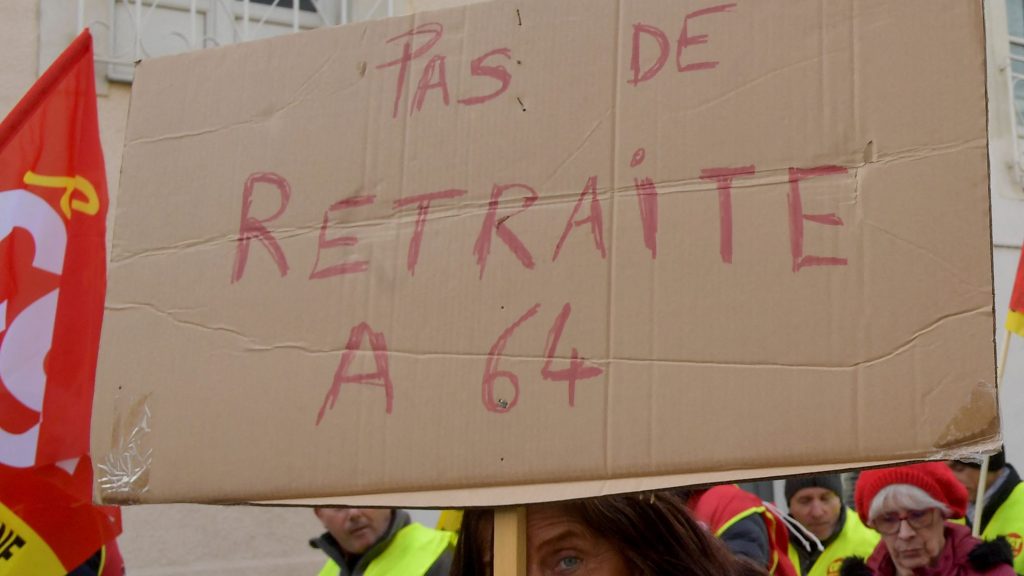 PAS DE
RETRAiTE
A 64